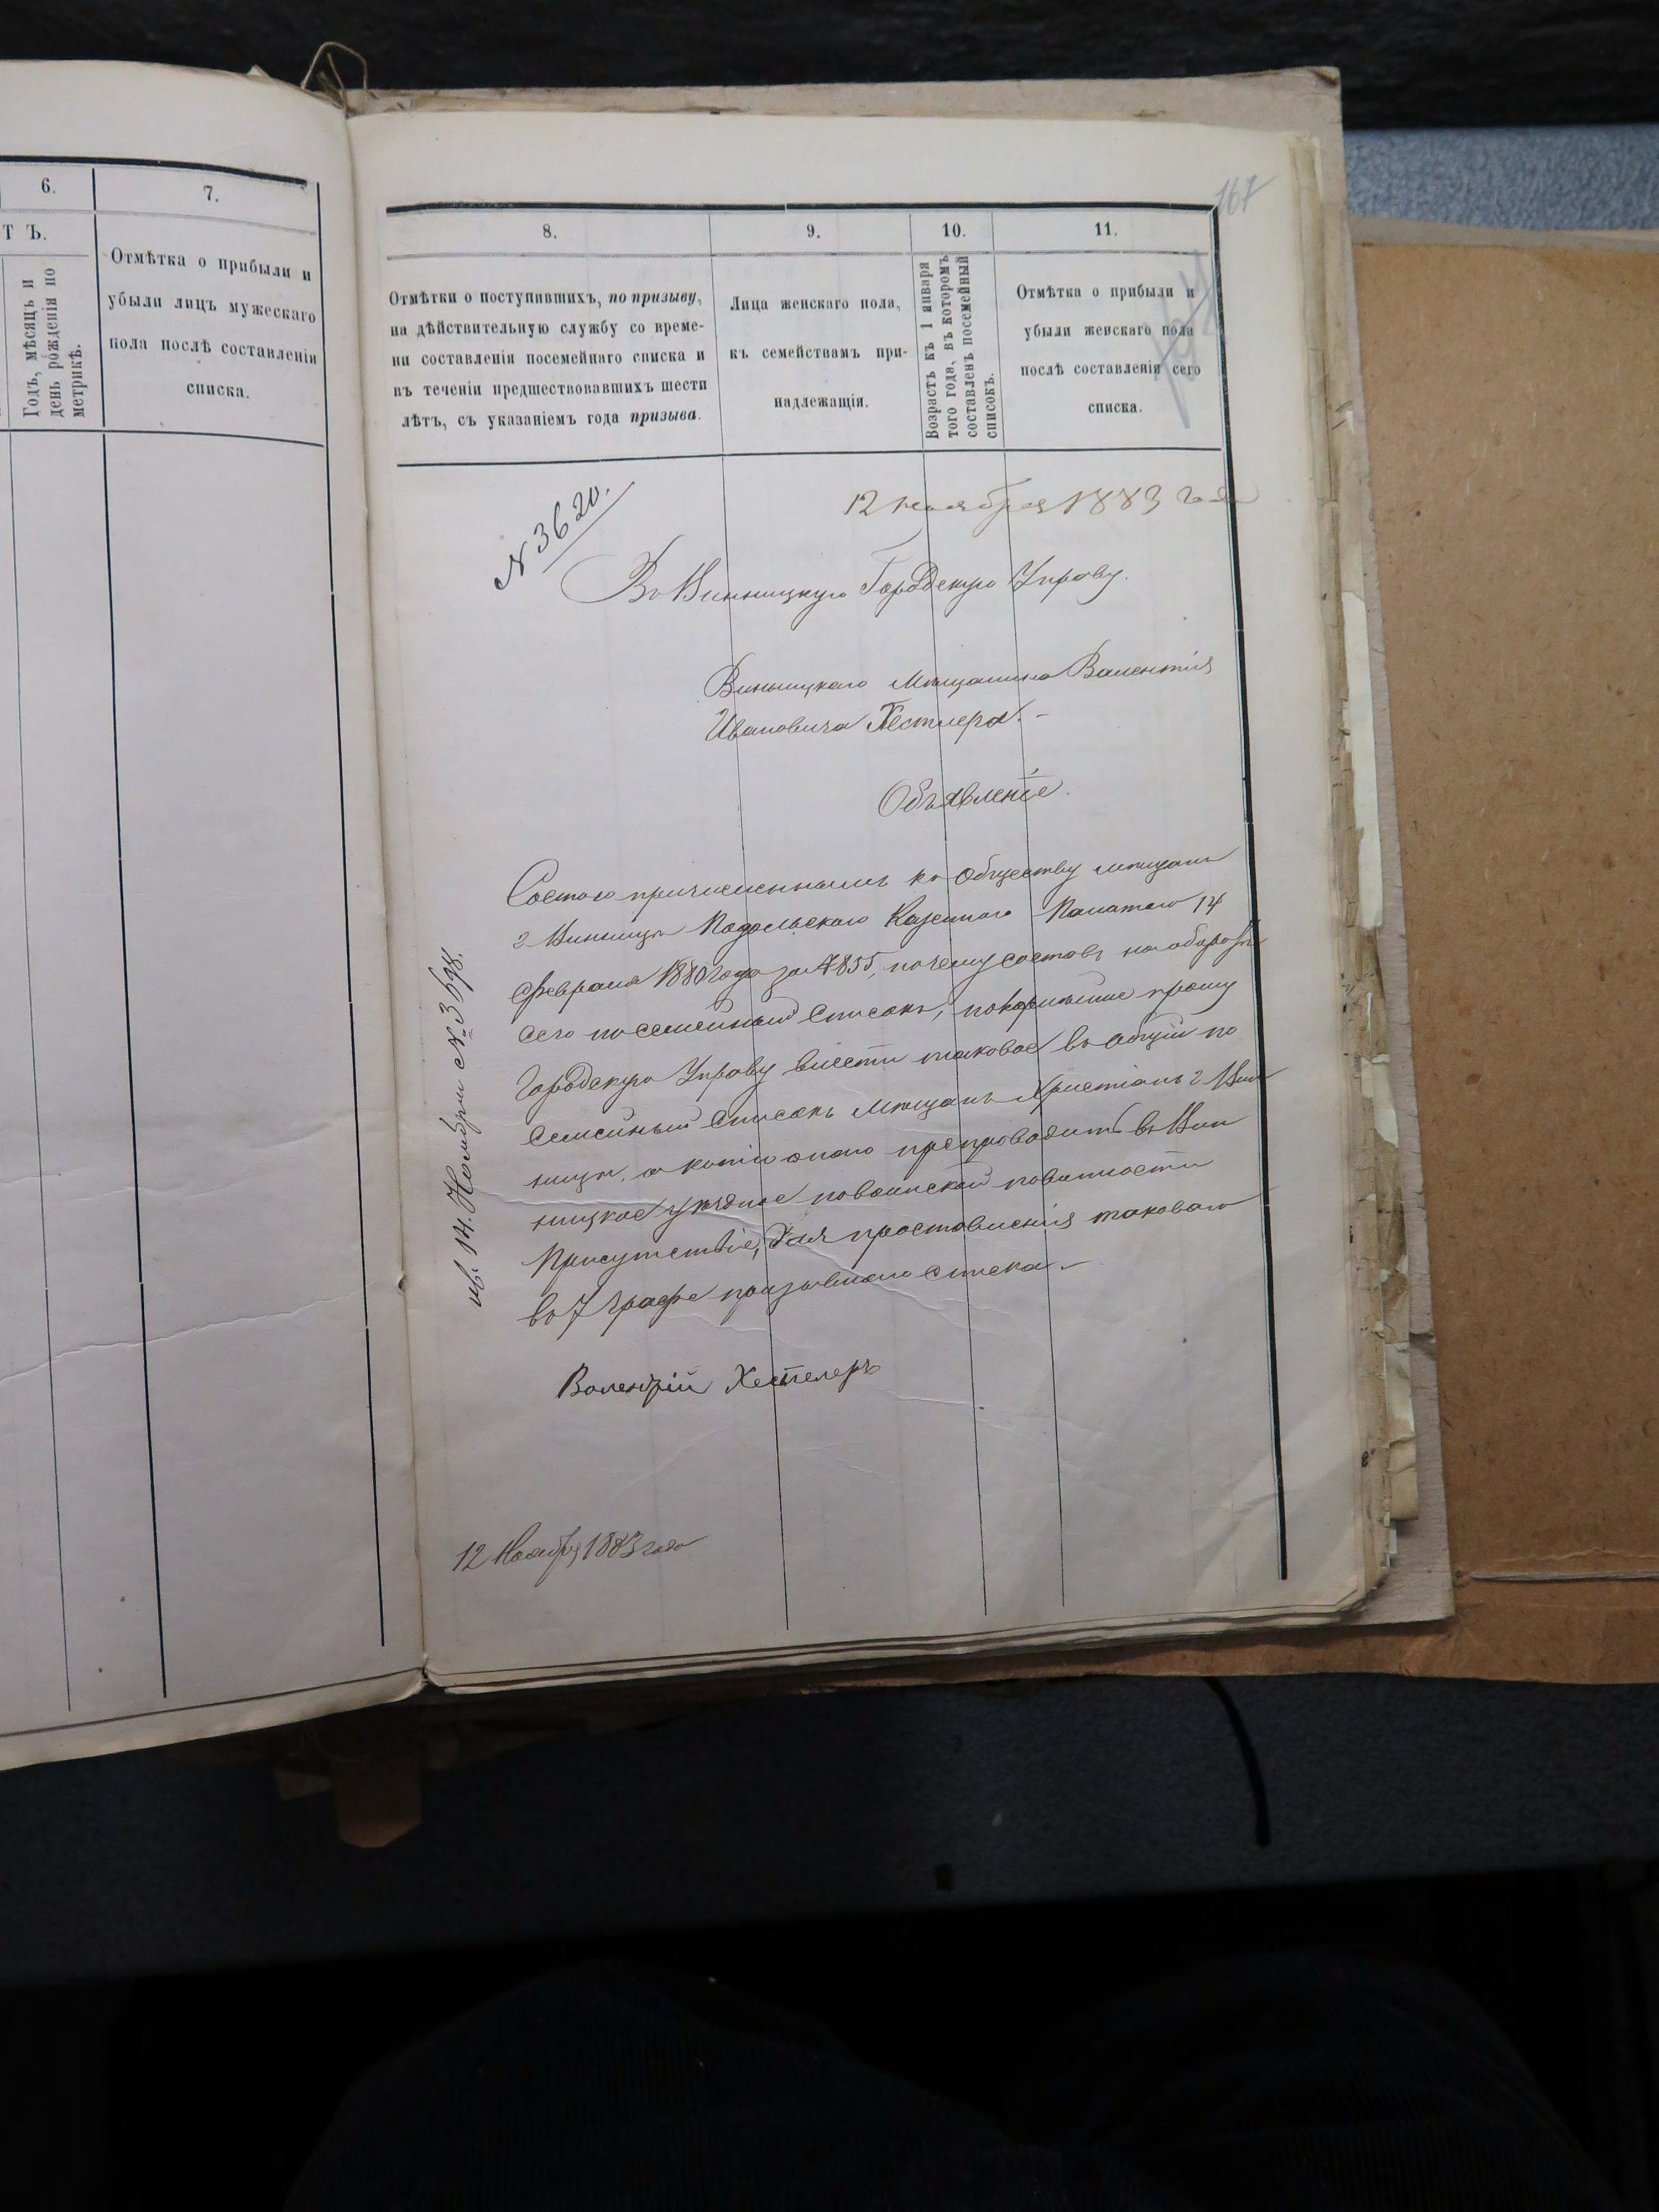 6.
7.
Т Ъ.
Годъ, мѣсяцъ и
день рожденія по
метрикѣ.
Отмѣтка о прибыли и
убыли лицъ мужескаго
пола послѣ составленія
списка.
167
8.
9.
10.
11.
Отмѣтки о поступившихъ, по призыву,
на дѣйствительную службу со време-
ни составленія посемейнаго списка и
въ теченіи предшествовавшихъ шести
лѣтъ, съ указаніемъ года призыва.
Лица женскаго пола,
къ семействамъ при-
надлежащія.
Возрастъ къ 1 января
того года, въ которомъ
составленъ посемейный
списокъ.
Отмѣтка о прибыли и
убыли женскаго пола
послѣ составленія сего
списка.
№ 3620.
12 ноября 1883 года
Въ Винницкую Городскую Управу.
Винницкаго Мѣщанина Валентія
Ивановича Гестлера.-
Объявленіе.
Состою причисленнымъ къ обществу мѣщанъ
г Винницы Подольскаго Казенною Палатою 14
февраля 1880 года за № 855, почему составъ на оборотѣ
сего посемейный списокъ, покорнѣйше прошу
Городскую Управу внести таковое въ общій по
семейный списокъ мѣщанъ христіанъ г Вин
ницы, а копію онаго препроводить въ Вин
ницкое уѣздное по воинской повинности
Присутствіе, для проставленія таковаго
въ 7 графе призывнаго списка.-
Валентій Хестлеръ
12 Ноября 1883 года
14. Ноября № 3698.